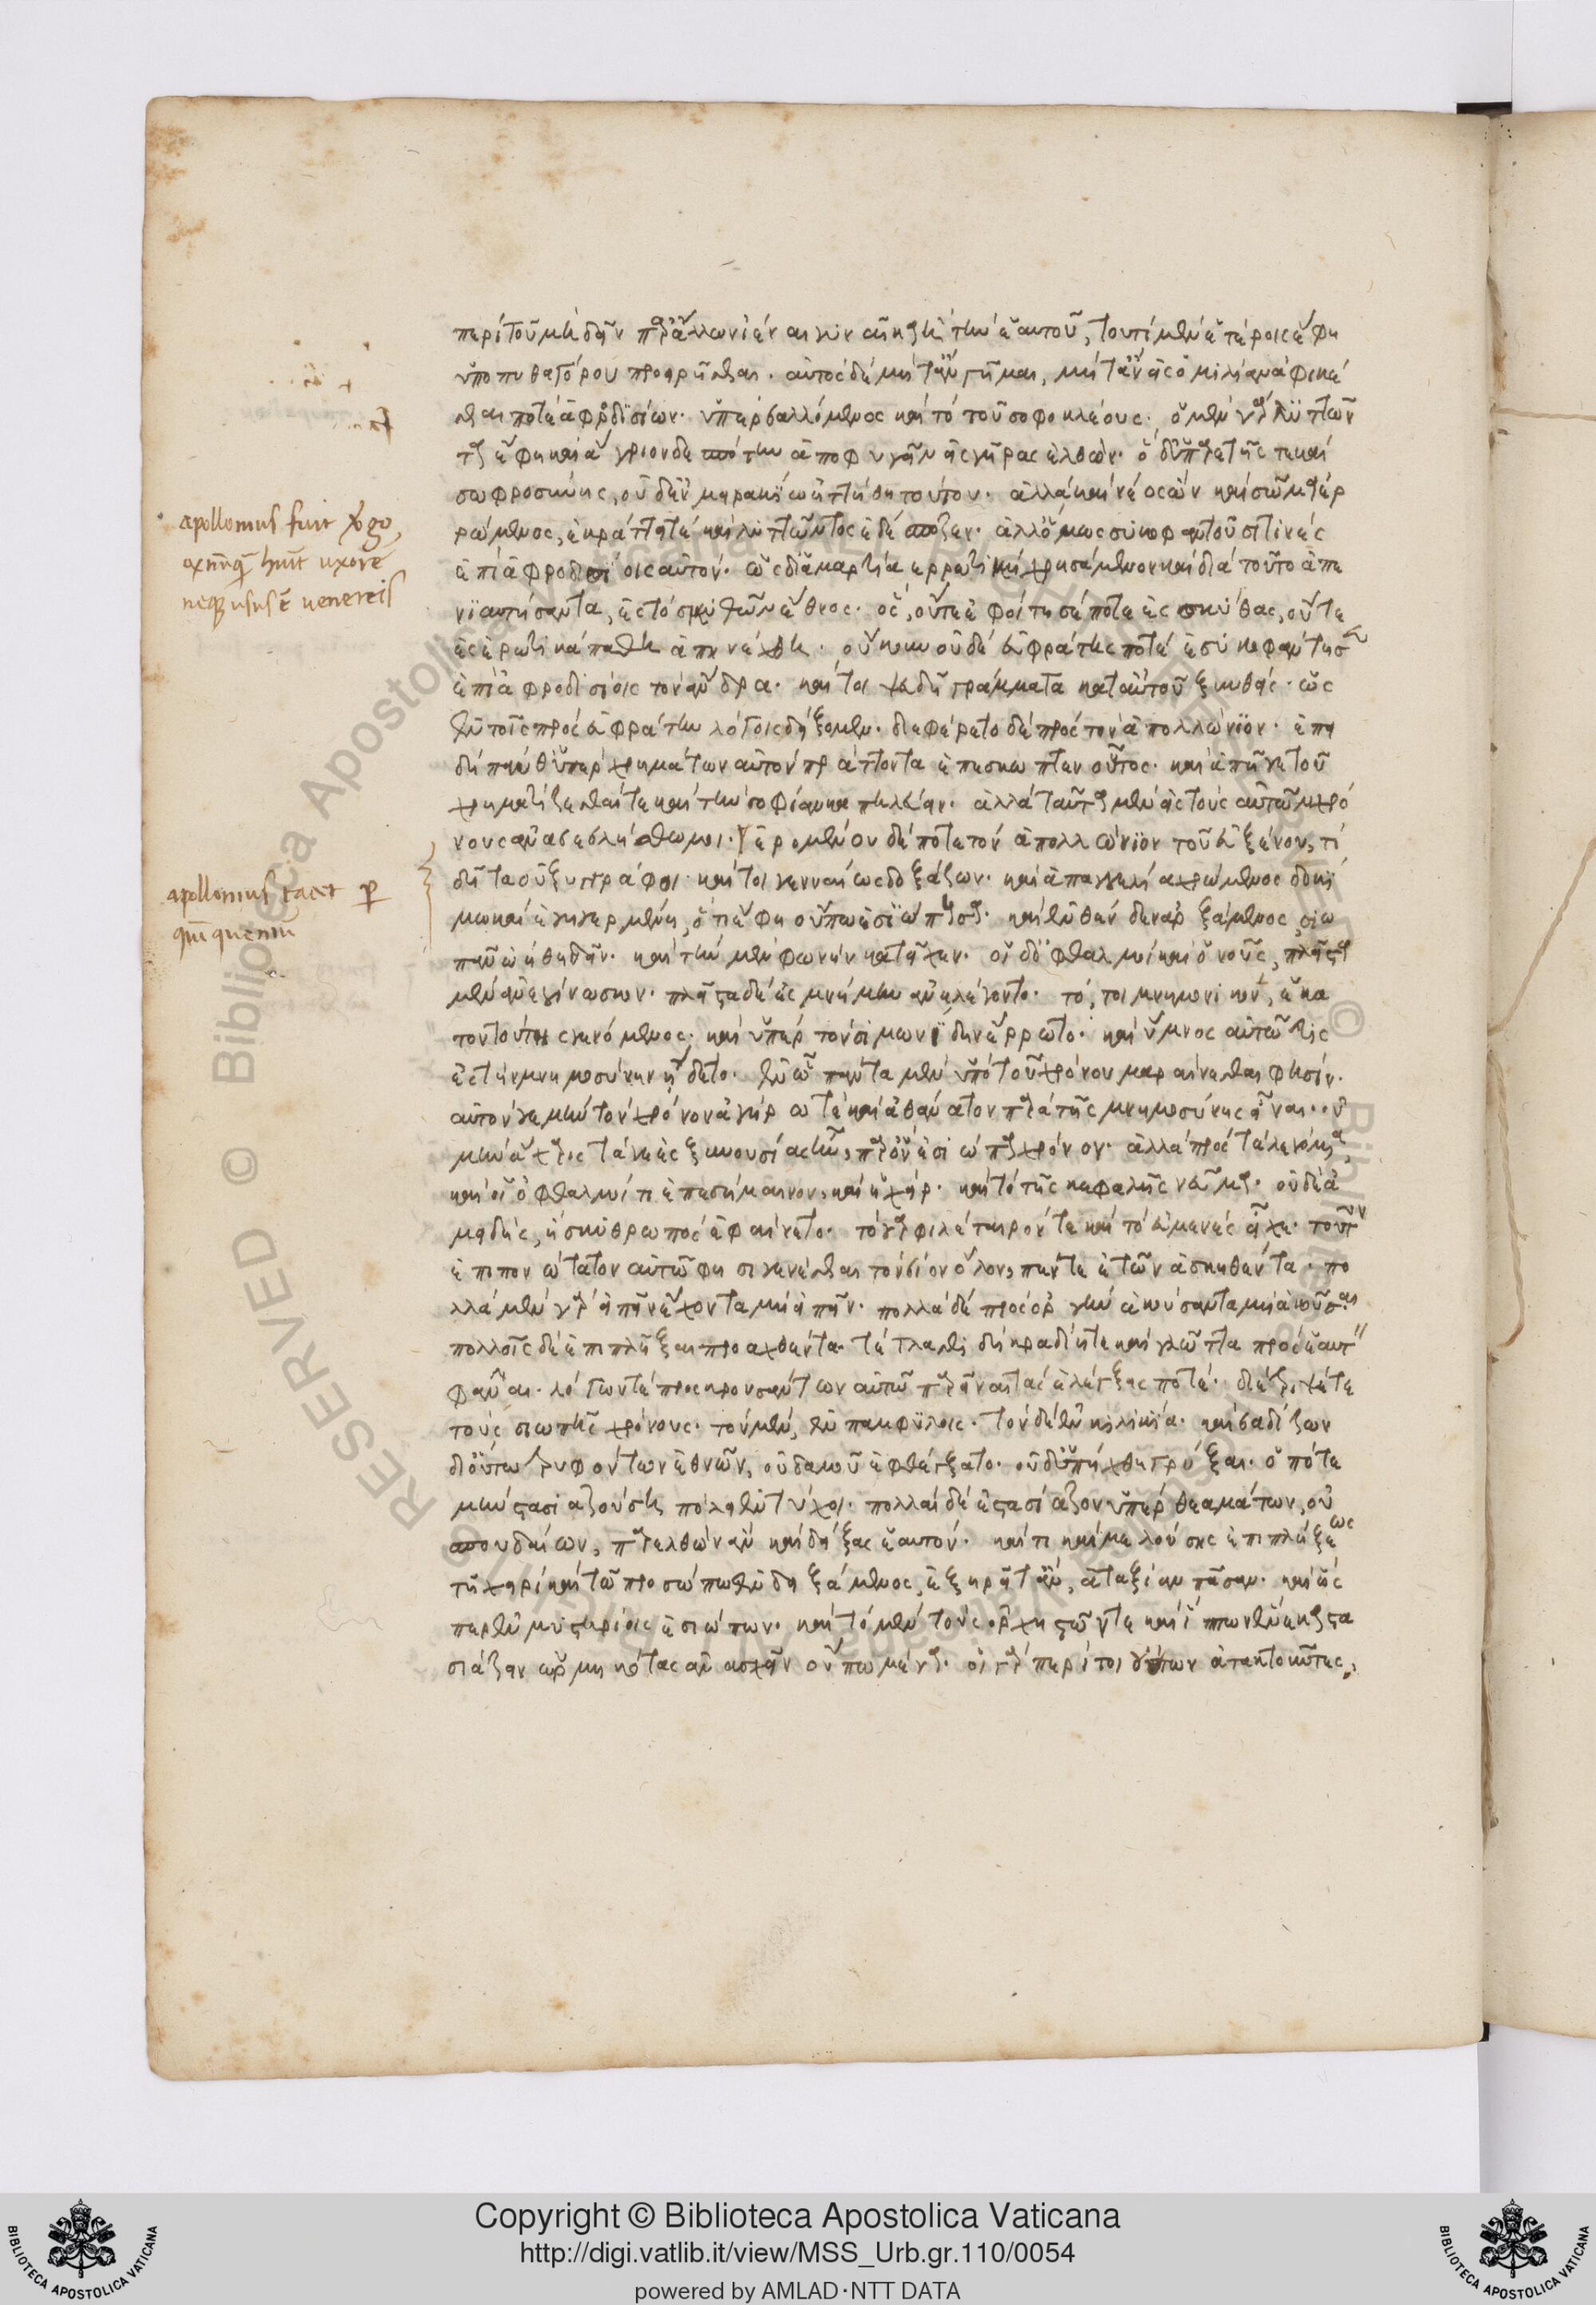 περὶ τοῦ μὴ δεῖν παρ' ἄλλην ἰέναι γυναῖκα ἢ τὴν ἑαυτοῦ, τουτὶ μὲν ἑτέροις ἔφη
ὑπὸ πυθαγόρου προειρῆσθαι. αὐτὸς δὲ μήτ' ἂν γῆμαι, μήτ' ἂν εἰς ὁμιλίαν ἀφικέ
σθαι ποτὲ ἀφροδισίων. ὑπερβαλλόμενος καὶ τὸ τοῦ σοφοκλέους. ὁ μὲν γὰρ λυττῶν
τα ἔφη καὶ ἄγριον δεσπότην ἀποφυγεῖν εἰς γῆρας ἐλθών. ὁ δ' ὑπ' ἀρετῆς τε καὶ
σωφροσύνης, οὐδ' ἐν μειρακίῳ ἡττήθη τούτου. ἀλλὰ καὶ νέος ὢν καὶ σῶμα ἐρ
ρωμένος, ἐκράτει τε καὶ λυττῶντος ἐδέσποζεν. ἀλλ' ὅμως συκοφαντοῦσί τινες
ἐπὶ ἀφροδισίοις αὐτόν. ὡς διαμαρτίᾳ ἐρρωτικῇ χρησάμενον καὶ διὰ τοῦτο ἀπε
νϊαυτήσαντα, ἐς τὸ σκυθῶν ἔθνος. ὃς, οὔτε ἐφοίτησέ ποτε ἐς σκύθας, οὔτε
ἐς ἐρωτικὰ πάθη ἀπηνέχθη. οὔκουν οὐδὲ εὐφράτης ποτὲ ἐσυκοφάντησεν
ἐπὶ ἀφροδισίοις τὸν ἄνδρα. καίτοι ψευδῆ γράμματα κατ' αὐτοῦ ξυνθείς. ὡς
ἐν τοῖς πρὸς εὐφράτην λόγοις δείξομεν. διεφέρετο δὲ πρὸς τὸν ἀπολλώνϊον. ἐπει
δὴ πάνθ' ὑπὲρ χρημάτων αὐτὸν πράττοντα ἐπέσκωπτεν οὗτος. καὶ ἀπῆγε τοῦ
χρηματίζεσθαί τε καὶ τὴν σοφίαν καπηλεύειν. ἀλλὰ ταῦτα μὲν εἰς τοὺς αὐτῶν χρό
νους ἀναβεβλήσθω μοι. ἐρομένου δέ ποτε τὸν ἀπολλώνϊον τοῦ εὐξένου, τί
δῆτα οὐ ξυγγράφοι καίτοι γενναίως δοξάζων. καὶ ἀπαγγελίᾳ χρώμενος δοκί
μῳ καὶ ἐγηγερμένῃ, ὅτι ἔφη οὔπω ἐσϊώπησα. καὶ ἐνθένδε ἀρξάμενος, σιω
πᾶν ᾠήθη δεῖν. καὶ τὴν μὲν φωνὴν κατεῖχεν. οἱ δ' ὀφθαλμοὶ καὶ ὁ νοῦς, πλεῖστα
μὲν ἀνεγίνωσκον. πλεῖστα δὲ ἐς μνήμην ἀνελέγοντο. τό, τοι μνημονικὸν, ἑκα
τοντούτης γενόμενος. καὶ ὑπὲρ τὸν σιμωνίδην ἔρρωτο. καὶ ὕμνος αὐτῷ τις
ἐς τὴν μνημοσύνην ᾔδετο. ἐν ᾧ πάντα μὲν ὑπὸ τοῦ χρόνου μαραίνεσθαι φησίν.
αὐτόν γε μὴν τὸν χρόνον ἀγήρω τὲ καὶ ἀθάνατον παρὰ τῆς μνημοσύνης εἶναι. οὐ
μὴν ἄχαρις τά γε ἐς ξυνουσίας ἦν, παρ' ὃν ἐσιώπα χρόνον. ἀλλὰ πρὸς τὰ λεγόμενα,
καὶ οἱ ὀφθαλμοί τι ἐπεσήμαινον, καὶ ἡ χείρ. καὶ τὸ τῆς κεφαλῆς νεῦμα. οὐδὲ ἀ
μειδὴς, ἢ σκυθρωπὸς ἐφαίνετο. τὸ γὰρ φιλέταιρόν τε καὶ τὸ εὐμενὲς εἶχε. τοῦτον
ἐπιπονώτατον αὐτῷ φησι γενέσθαι τὸν βίον ὅλον, πέντε ἐτῶν ἀσκηθέντα. πο
λλὰ μὲν γὰρ εἰπεῖν ἔχοντα μὴ εἰπεῖν. πολλὰ δὲ πρὸς ὀργὴν ἀκούσαντα μὴ ἀκοῦσαι
πολλοῖς δὲ ἐπιπλῆξαι προαχθέντα. τέτλαθι δὴ κραδίη τε καὶ γλῶττα πρὸς ἑαυτὸν
φάναι. λόγων τε προσκρουσάντων αὐτῷ παρεῖναι τὰς ἐλέγξεις ποτέ. διέτριψέ τε
τοὺς σιωπῆς χρόνους. τὸν μὲν, ἐν παμφύλοις. τὸν δὲ ἐν κιλικίᾳ. καὶ βαδίζων
δι' οὕτω τρυφόντων ἐθνῶν, οὐδαμοῦ ἐφθέγξατο. οὐδ' ὑπήχθη γρύξαι. ὁπότε
μὴν στασιαζούσῃ πόλει ἐντύχοι. πολλαὶ δὲ ἐστασίαζον ὑπὲρ θεαμάτων, οὐ
σπουδαίων, παρελθὼν ἂν καὶ δείξας ἑαυτόν. καί τι καὶ μελούσης ἐπιπλήξεως
τῇ χειρὶ καὶ τῷ προσώπῳ ἐνδειξάμενος, ἐξῄρητ' ἂν, ἀταξίαν πᾶσαν. καὶ ὥσ
περ ἐν μυστηρίοις ἐσιώπων. καὶ τὸ μὲν τοὺς ὀρχηστῶν τε καὶ ἵππων ἕνεκα στα
σιάζειν ὡρμηκότας ἀνασχεῖν οὔπω μέγα. οἱ γὰρ περὶ τοιούτων ἀτακτοῦντες,
apollonius fuit Virgo,
huit uxorē
neque usus ē venereis
apollonius tacet p
quīquenniū
Copyright © Biblioteca Apostolica Vaticana
http://digi.vatlib.it/view/MSS_Urb.gr.110/0054
powered by AMLAD·NTT DATA
BIBLIOTECA APOSTOLICA VATICANA
BIBLIOTECA APOSTOLICA VATICANA